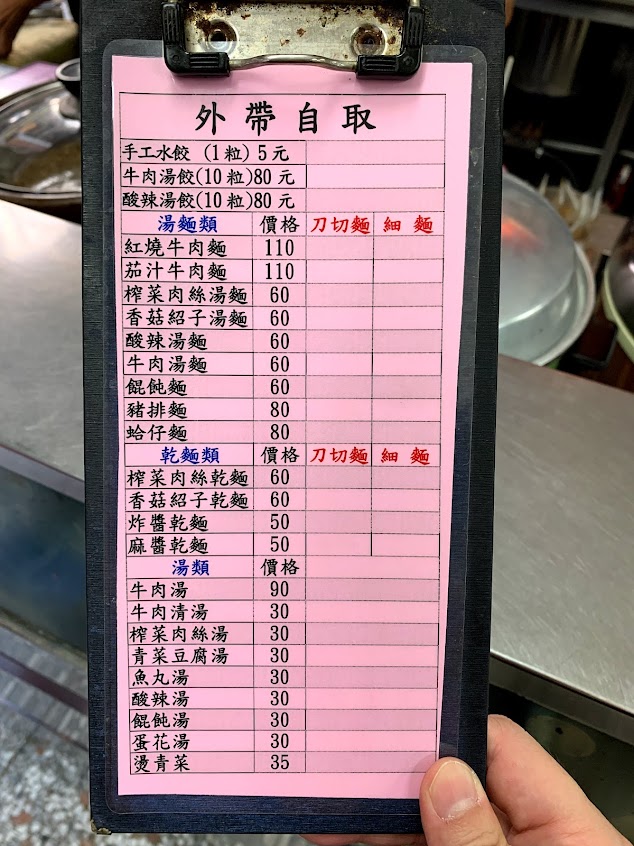 外帶自取
手工水餃 (1粒) 5元
牛肉湯餃(10粒)80元
酸辣湯餃(10粒)80元
湯麵類 價格 刀切麵 細麵
紅燒牛肉麵 110
茄汁牛肉麵 110
榨菜肉絲湯麵 60
香菇紹子湯麵 60
酸辣湯麵 60
牛肉湯麵 60
餛飩麵 60
豬排麵 80
蛤仔麵 80
乾麵類 價格 刀切麵 細麵
榨菜肉絲乾麵 60
香菇紹子乾麵 60
炸醬乾麵 50
麻醬乾麵 50
湯類 價格
牛肉湯 90
牛肉清湯 30
榨菜肉絲湯 30
青菜豆腐湯 30
魚丸湯 30
酸辣湯 30
餛飩湯 30
蛋花湯 30
燙青菜 35